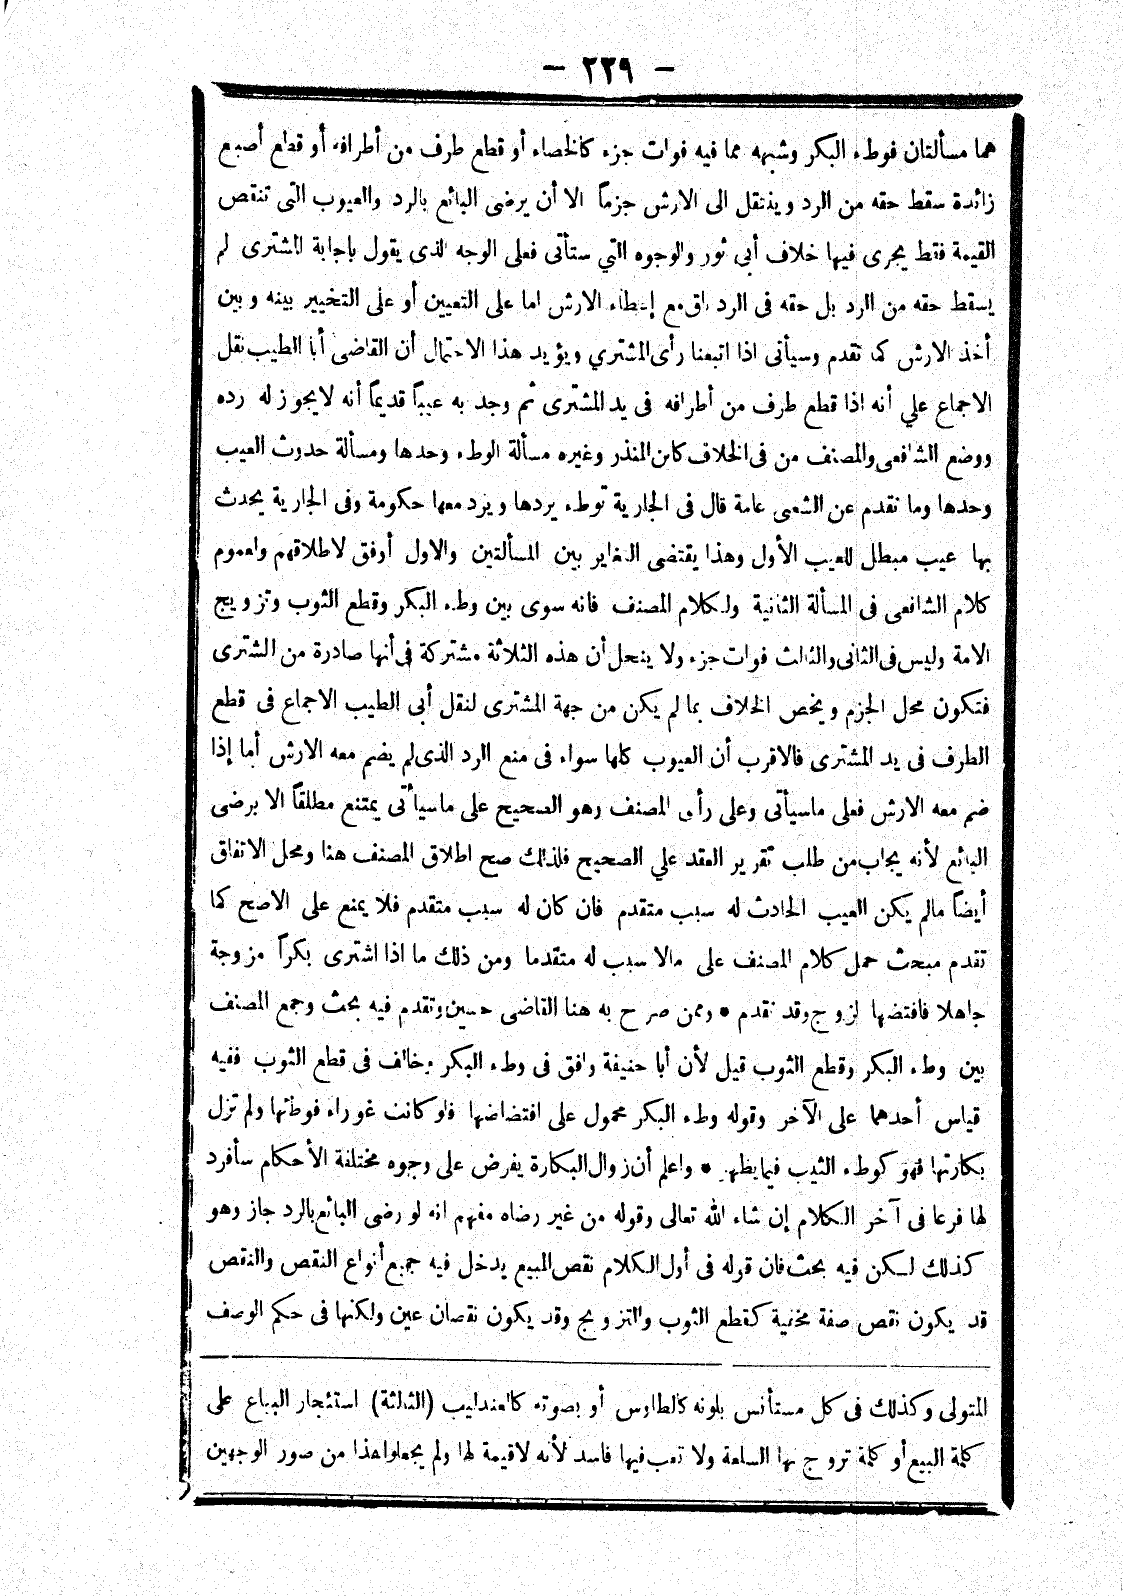 — ٢٢٩ —
هما مسألتان فوطء البكر وشبهه مما فيه فوات جزء كالخصاء أو قطع طرف من أطرافه أو قطع أصبع
زائدة سقط حقه من الرد وينتقل الى الارش جزماً الا أن يرضى البائع بالرد والعيوب التى تنقص
القيمة فقط يجرى فيها خلاف أبى ثور والوجوه التي ستأتى فعلى الوجه الذى يقول باجابة المشترى لم
يسقط حقه من الرد بل حقه فى الرد باق مع إعطاء الارش اما على التعيين أو على التخيير بينه وبين
أخذ الارش كما تقدم وسيأتى اذا اتبعنا رأى المشتري ويؤيد هذا الاحتمال أن القاضى أبا الطيب نقل
الاجماع علي أنه اذا قطع طرف من أطرافه فى يد المشترى ثم وجد به عيباً قديماً أنه لايجوز له رده
ووضع الشافعى والمصنف من فى الخلاف كابن المنذر وغيره مسألة الوطء وحدها ومسألة حدوث العيب
وحدها وما تقدم عن الشعبى عامة قال فى الجارية توطء يردها ويرد معها حكومة وفى الجارية يحدث
بها عيب مبطل للعيب الأول وهذا يقتضى التغاير بين المسألتين والاول أوفق لاطلاقهم ولعموم
كلام الشافعى فى المسألة الثانية ولكلام المصنف فانه سوى بين وطء البكر وقطع الثوب وتزويج
الامة وليس فى الثانى والثالث فوات جزء ولا ينحل أن هذه الثلاثة مشتركة فى أنها صادرة من المشترى
فتكون محل الجزم ويخص الخلاف بما لم يكن من جهة المشترى لنقل أبى الطيب الاجماع فى قطع
الطرف فى يد المشترى فالاقرب أن العيوب كلها سواء فى منع الرد الذى لم يضم معه الارش أما إذا
ضم معه الارش فعلى ماسيأتى وعلى رأى المصنف وهو الصحيح على ماسيأتى يمتنع مطلقاً الا برضى
البائع لأنه يجاب من طلب تقرير العقد علي الصحيح فلذلك صح اطلاق المصنف هنا ومحل الاتفاق
أيضاً مالم يكن العيب الحادث له سبب متقدم فان كان له سبب متقدم فلا يمنع على الاصح كما
تقدم مبحث حمل كلام المصنف على مالا سبب له متقدما ومن ذلك ما اذا اشترى بكراً مزوجة
جاهلا فافتضها لزوج وقد تقدم • وممن صرح به هنا القاضى حسين وتقدم فيه بحث وجمع المصنف
بين وطء البكر وقطع الثوب قيل لأن أبا حنيفة وافق فى وطء البكر وخالف فى قطع الثوب ففيه
قياس أحدهما على الآخر وقوله وطء البكر محمول على افتضاضها فلو كانت غوراء فوطئها ولم تزل
بكارتها فهو كوطء الثيب فيما يظهر • واعلم أن زوال البكارة يفرض على وجوه مختلفة الأحكام سأفرد
لها فرعا فى آخر الكلام إن شاء الله تعالى وقوله من غير رضاه مفهم انه لو رضى البائع بالرد جاز وهو
كذلك لكن فيه بحث فان قوله فى أول الكلام نقص المبيع يدخل فيه جميع أنواع النقص والنقص
قد يكون نقص صفة مخنية كقطع الثوب والتزويج وقد يكون نقصان عين ولكنها فى حكم الوصف
المتولى وكذلك فى كل مستأنس بلونه كالطاوس أو بصوته كالعندليب (الثالثة) استئجار البياع على
كلمة البيع أو كلمة تروج بها السلعة ولا تعب فيها فاسد لأنه لاقيمة لها ولم يجعلوا هذا من صور الوجهين